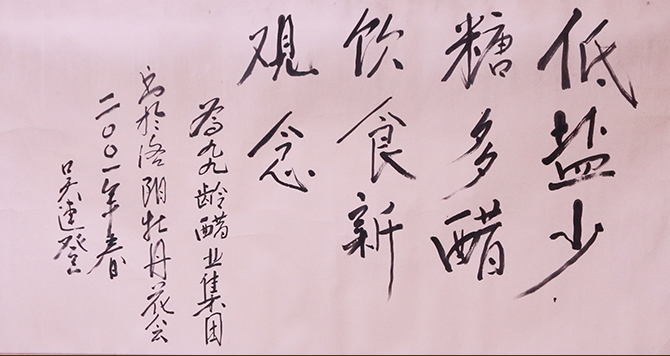 低盐少
糖多醋
饮食新
观念
为九九龄醋业集团
书于洛阳牡丹花会
二〇〇一年春
吴连登